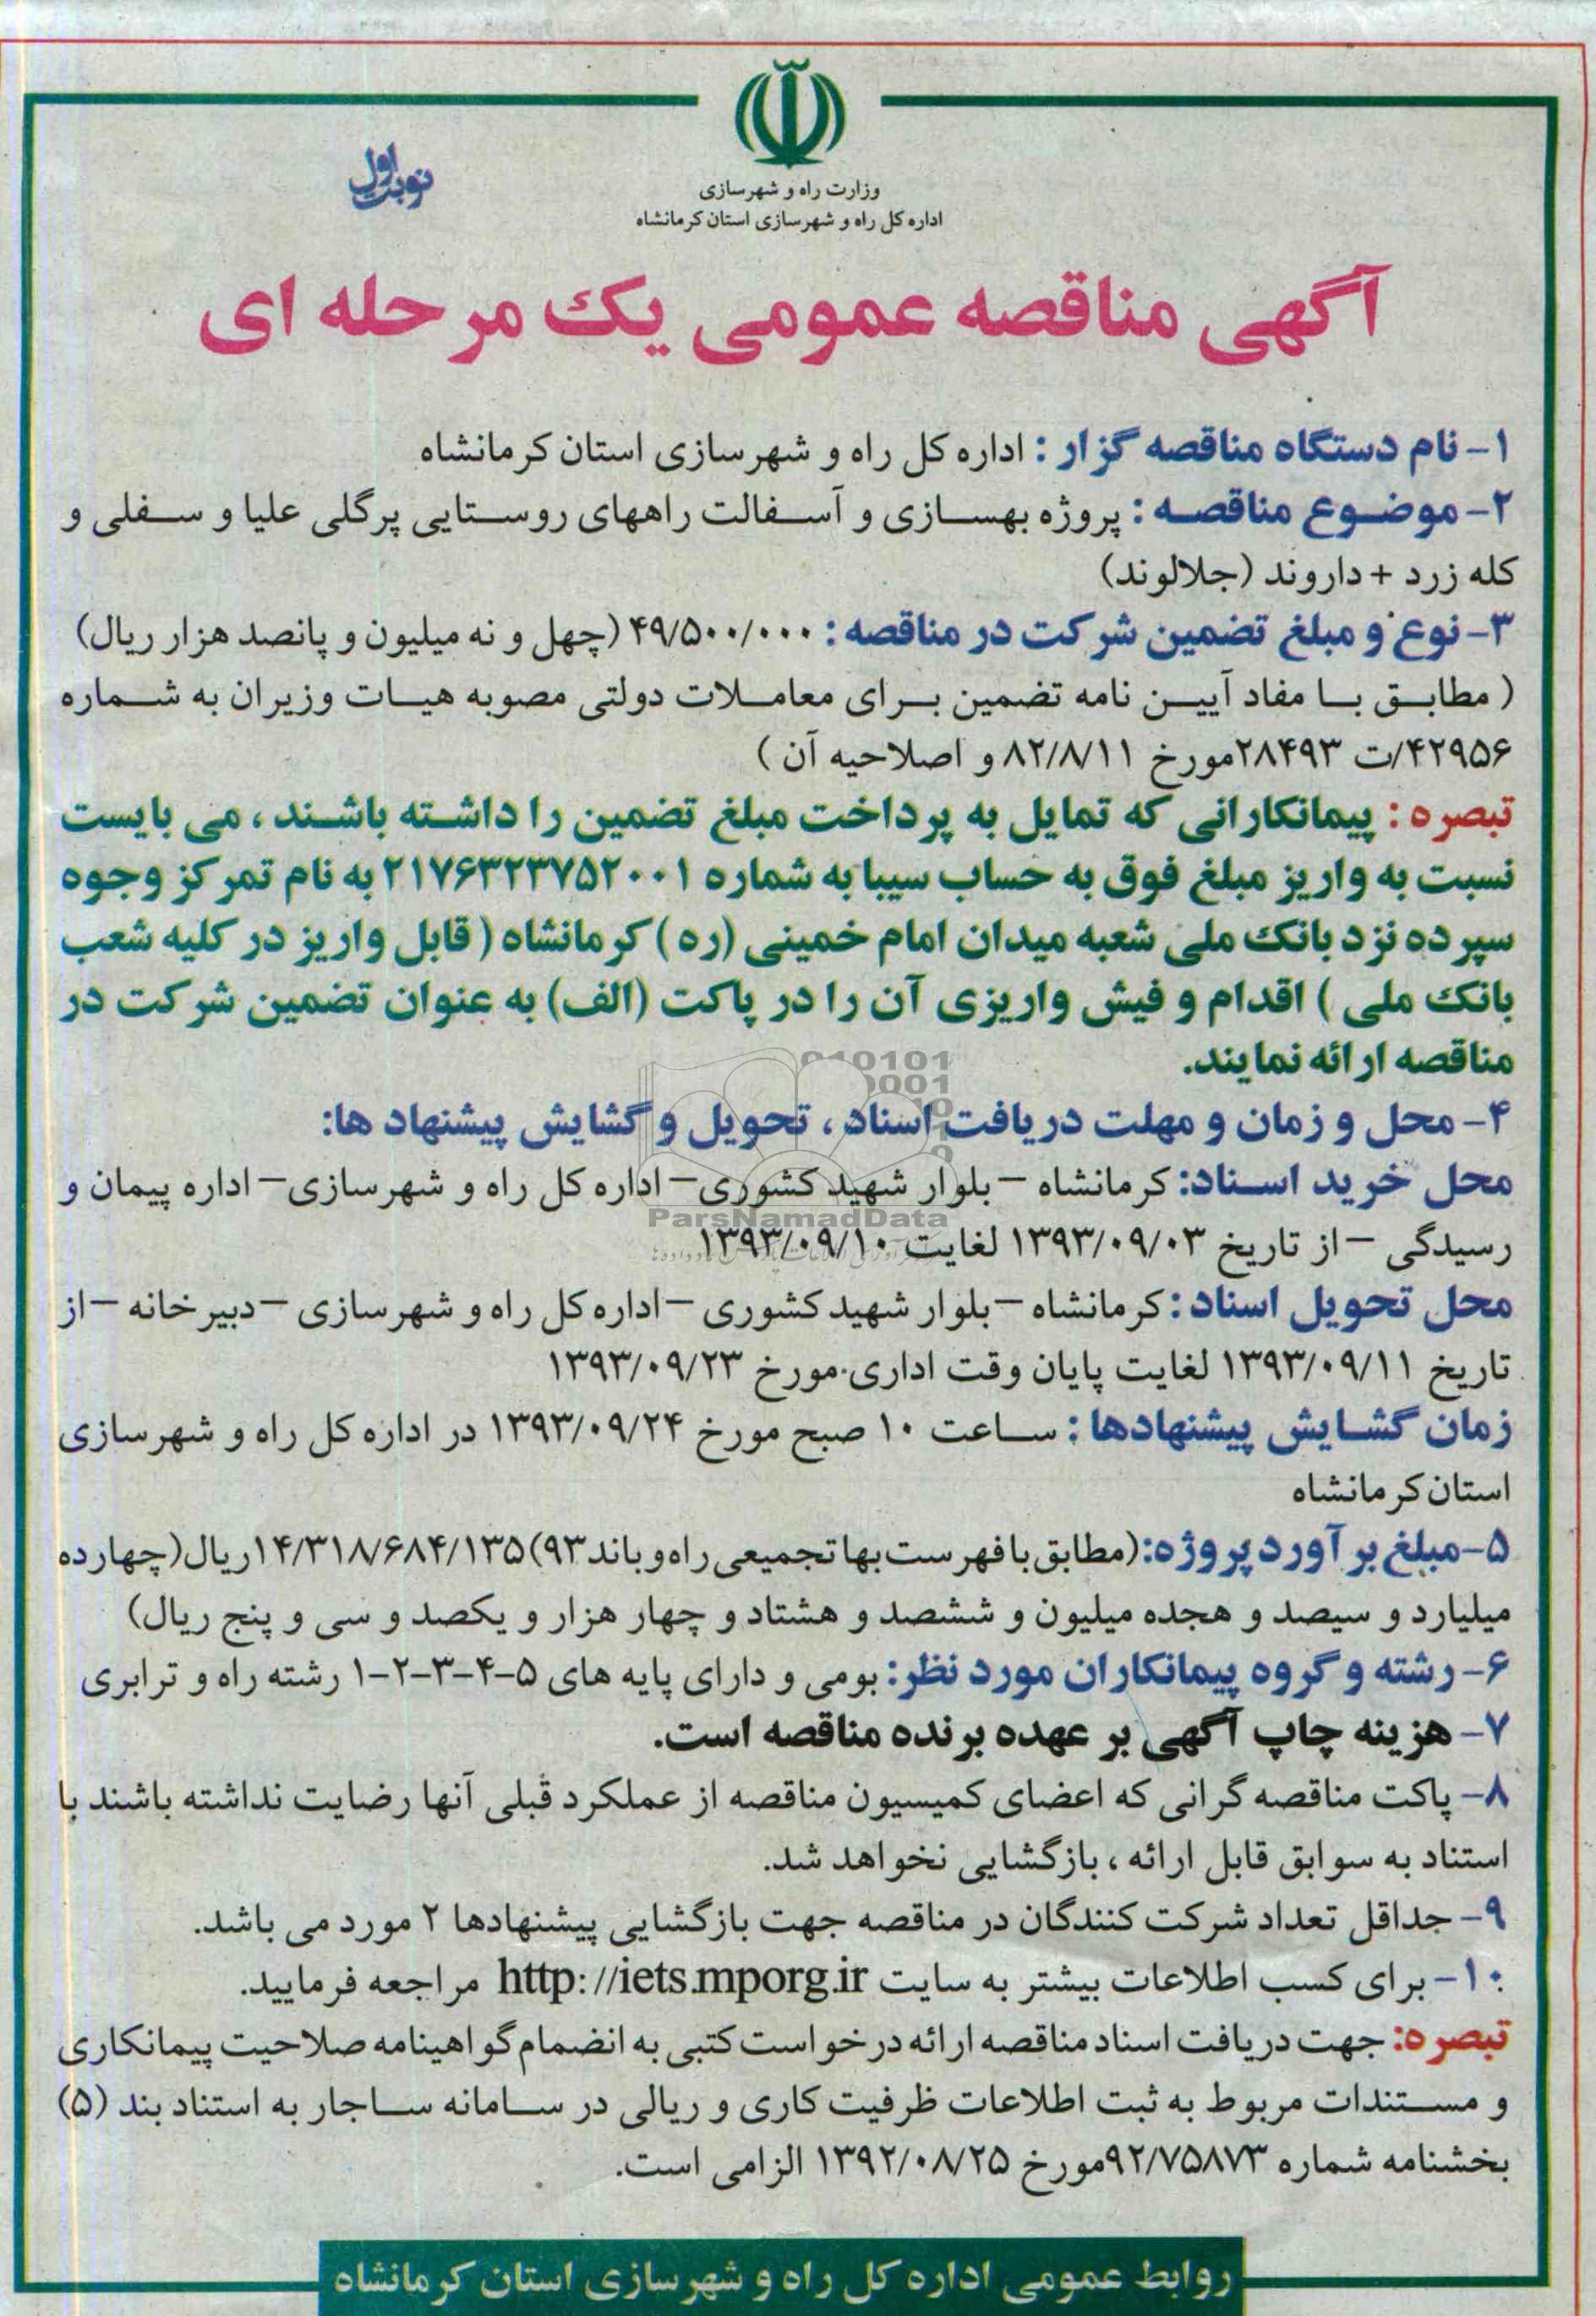 وزارت راه و شهرسازی
اداره کل راه و شهرسازی استان کرمانشاه
نوبت اول
آگهی مناقصه عمومی یک مرحله ای
۱- نام دستگاه مناقصه گزار : اداره کل راه و شهرسازی استان کرمانشاه
۲- موضوع مناقصه : پروژه بهسازی و آسفالت راههای روستایی پرگلی علیا و سفلی و
کله زرد + داروند (جلالوند)
۳- نوع و مبلغ تضمین شرکت در مناقصه : ۴۹/۵۰۰/۰۰۰ (چهل و نه میلیون و پانصد هزار ریال)
( مطابق با مفاد آیین نامه تضمین برای معاملات دولتی مصوبه هیات وزیران به شماره
۴۲۹۵۶/ت ۲۸۴۹۳مورخ ۸۲/۸/۱۱ و اصلاحیه آن )
تبصره : پیمانکارانی که تمایل به پرداخت مبلغ تضمین را داشته باشند ، می بایست
نسبت به واریز مبلغ فوق به حساب سیبا به شماره ۲۱۷۶۳۲۳۷۵۲۰۰۱ به نام تمرکز وجوه
سپرده نزد بانک ملی شعبه میدان امام خمینی (ره) کرمانشاه ( قابل واریز در کلیه شعب
بانک ملی ) اقدام و فیش واریزی آن را در پاکت (الف) به عنوان تضمین شرکت در
مناقصه ارائه نمایند.
۴- محل و زمان و مهلت دریافت اسناد ، تحویل و گشایش پیشنهاد ها:
محل خرید اسناد: کرمانشاه – بلوار شهید کشوری– اداره کل راه و شهرسازی– اداره پیمان و
رسیدگی – از تاریخ ۱۳۹۳/۰۹/۰۳ لغایت ۱۳۹۳/۰۹/۱۰
محل تحویل اسناد : کرمانشاه –بلوار شهید کشوری –اداره کل راه و شهرسازی –دبیرخانه –از
تاریخ ۱۳۹۳/۰۹/۱۱ لغایت پایان وقت اداری مورخ ۱۳۹۳/۰۹/۲۳
زمان گشایش پیشنهادها : ساعت ۱۰ صبح مورخ ۱۳۹۳/۰۹/۲۴ در اداره کل راه و شهرسازی
استان کرمانشاه
۵-مبلغ برآورد پروژه:(مطابق با فهرست بها تجمیعی راه و باند ۹۳)۱۴/۳۱۸/۶۸۴/۱۳۵ریال(چهارده
میلیارد و سیصد و هجده میلیون و ششصد و هشتاد و چهار هزار و یکصد و سی و پنج ریال)
۶- رشته و گروه پیمانکاران مورد نظر: بومی و دارای پایه های ۵-۴-۳-۲-۱ رشته راه و ترابری
۷- هزینه چاپ آگهی بر عهده برنده مناقصه است.
۸- پاکت مناقصه گرانی که اعضای کمیسیون مناقصه از عملکرد قبلی آنها رضایت نداشته باشند با
استناد به سوابق قابل ارائه ، بازگشایی نخواهد شد.
۹- حداقل تعداد شرکت کنندگان در مناقصه جهت بازگشایی پیشنهادها ۲ مورد می باشد.
۱۰- برای کسب اطلاعات بیشتر به سایت http://iets.mporg.ir مراجعه فرمایید.
تبصره: جهت دریافت اسناد مناقصه ارائه درخواست کتبی به انضمام گواهینامه صلاحیت پیمانکاری
و مستندات مربوط به ثبت اطلاعات ظرفیت کاری و ریالی در سامانه ساجار به استناد بند (۵)
بخشنامه شماره ۹۲/۷۵۸۷۳مورخ ۱۳۹۲/۰۸/۲۵ الزامی است.
روابط عمومی اداره کل راه و شهرسازی استان کرمانشاه
ParsNamadData